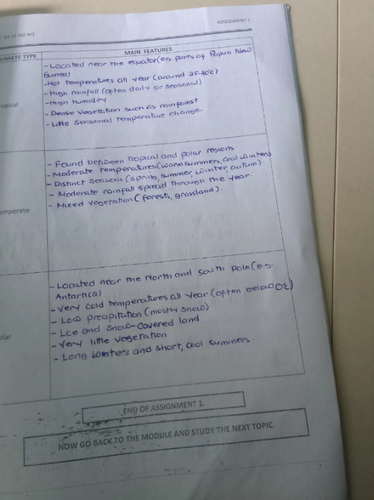 ASSIGNMENT 1
IMATE TYPE
MAIN FEATURES
- Located near the equator (e.g. parts of Papua New
Guinea)
- Hot temperatures all year (around 25-30°C)
- High rainfall (often daily or seasonal)
- High humidity
- Dense vegetation such as rainforest
- Little seasonal temperature change.
opical
- Found between tropical and polar regions
- Moderate temperatures (warm summers, cool winters)
- Distinct seasons (spring, summer, winter, autumn)
- Moderate rainfall spread through the year
- Mixed vegetation (forests, grassland).
emperate
- Located near the North and South Pole (e.g.
Antartica)
- Very cold temperatures all year (often below 0°C)
- Low precapitation (mostly snow)
- Ice and snow-covered land
- Very little vegetation
- Long winters and short, cool summers.
olar
END OF ASSIGNMENT 1.
NOW GO BACK TO THE MODULE AND STUDY THE NEXT TOPIC.